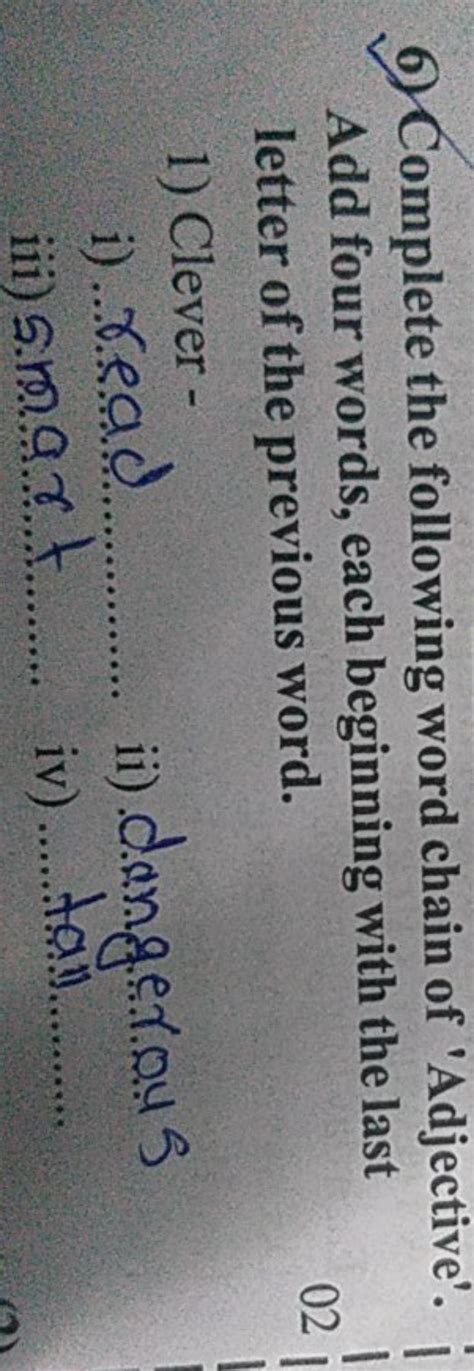 6) Complete the following word chain of 'Adjective'.
Add four words, each beginning with the last
letter of the previous word. 02
1) Clever -
i) ...read............... ii) .dangerous
iii) smart............ iv) ......tall...........